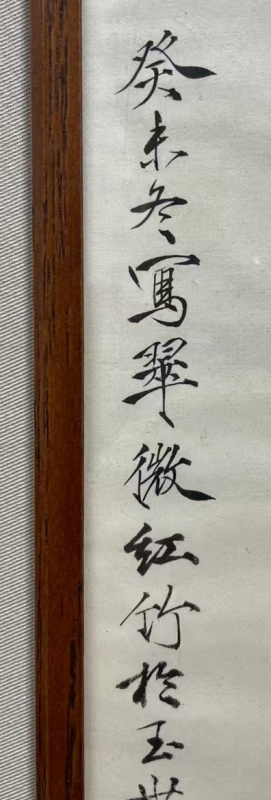 癸未冬寫翠微紅竹於玉